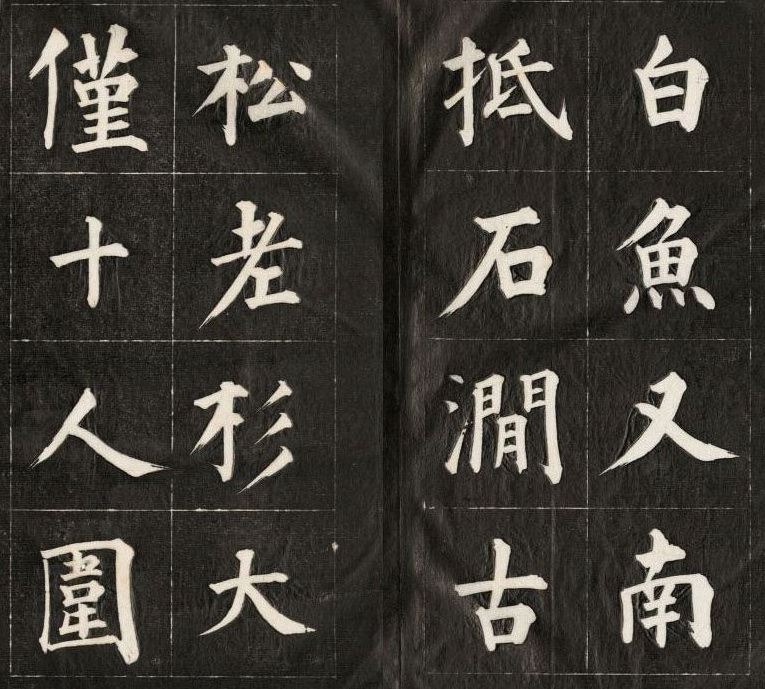 白魚又南
抵石澗古
松老杉大
僅十人圍